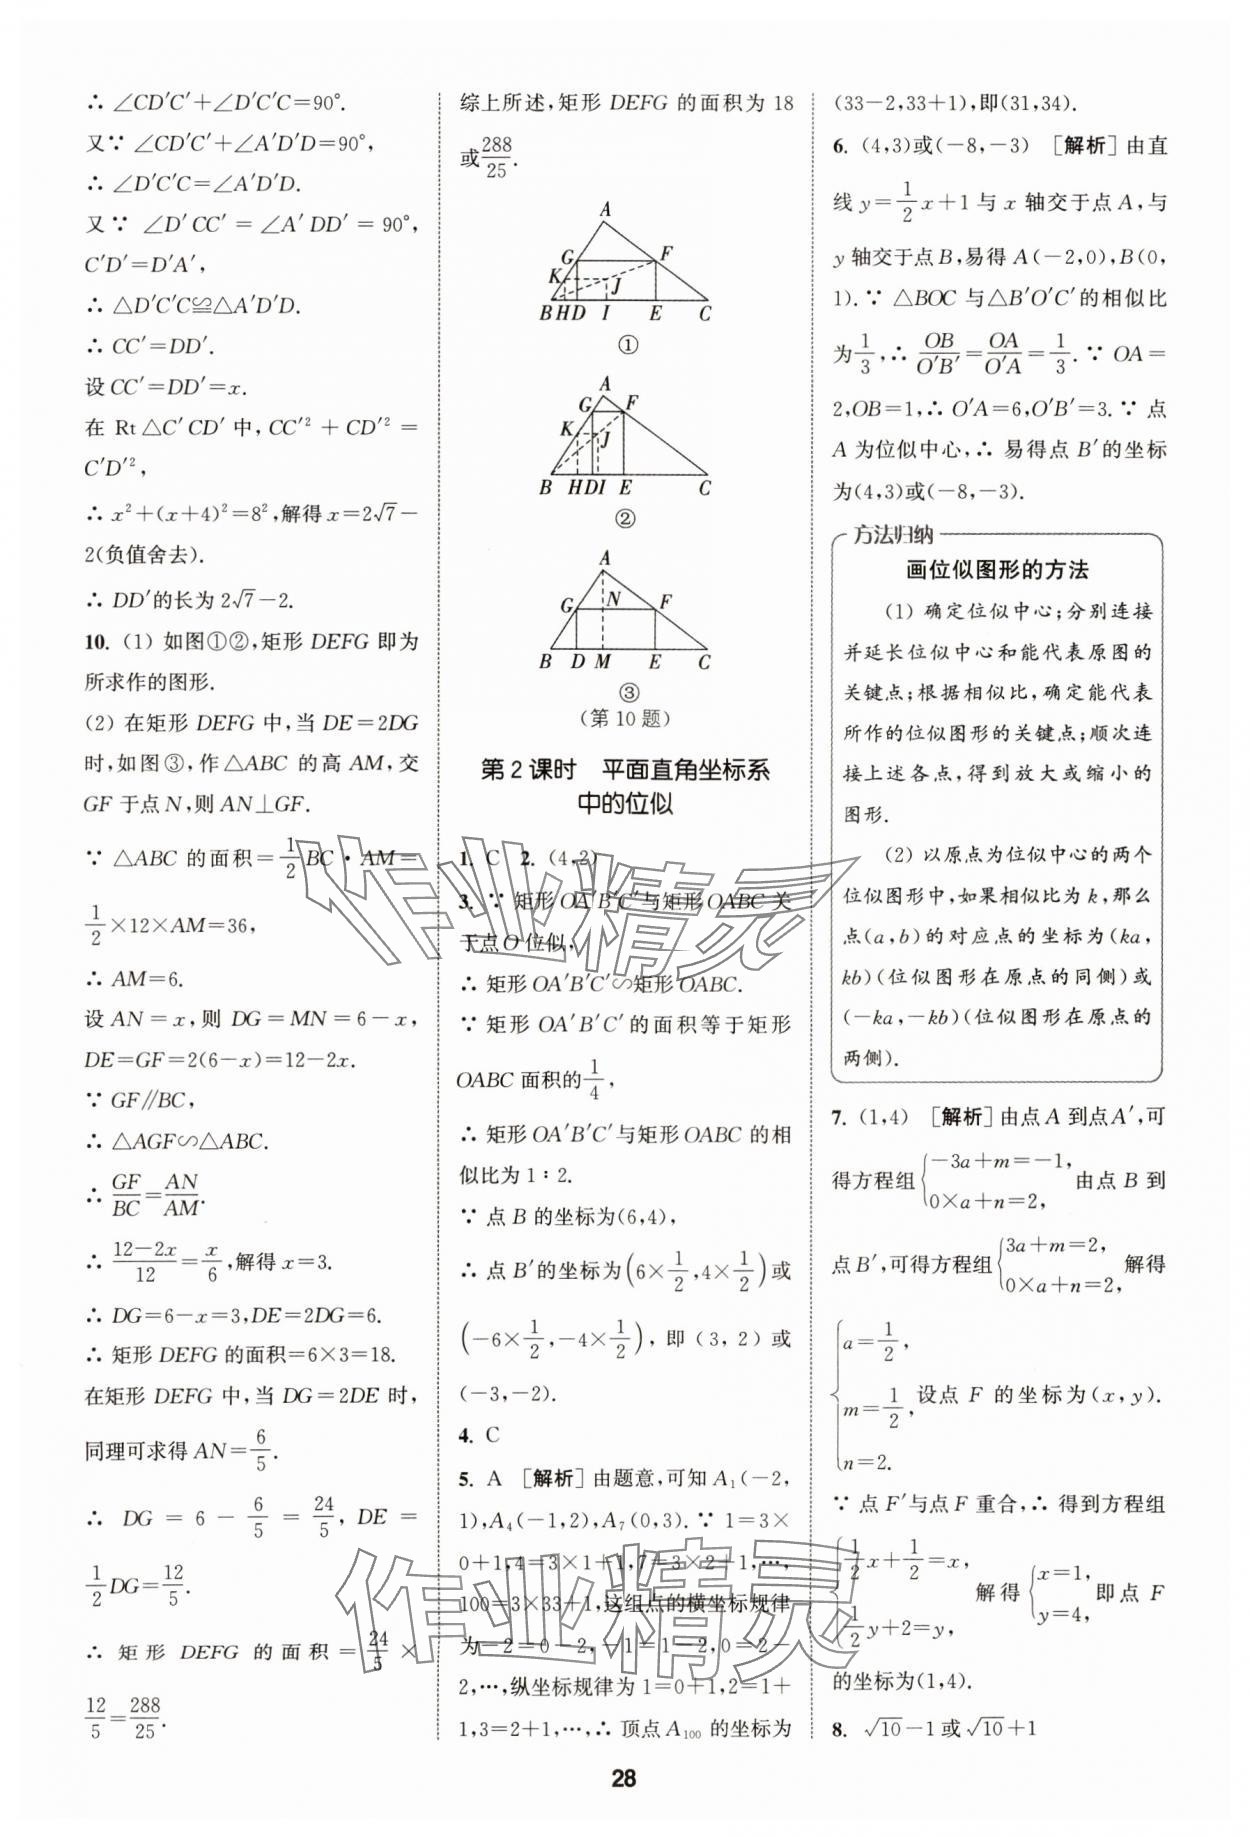 ∴ ∠CD′C′+∠D′C′C=90°.
又∵ ∠CD′C′+∠A′D′D=90°,
∴ ∠D′C′C=∠A′D′D.
又∵ ∠D′CC′=∠A′DD′=90°,
C′D′=D′A′,
∴ △D′C′C≌△A′D′D.
∴ CC′=DD′.
设CC′=DD′=x.
在 Rt△C′CD′中,CC′²+CD′²=
C′D′²,
∴ x²+(x+4)²=8²,解得x=2√7-
2(负值舍去).
∴ DD′的长为2√7-2.
10. (1) 如图①②,矩形 DEFG 即为
所求作的图形.
(2) 在矩形 DEFG 中,当 DE=2DG
时,如图③,作△ABC 的高 AM,交
GF 于点 N,则 AN⊥GF.
∵ △ABC 的面积=1/2 BC·AM=
1/2×12×AM=36,
∴ AM=6.
设 AN=x,则 DG=MN=6-x,
DE=GF=2(6-x)=12-2x.
∵ GF∥BC,
∴ △AGF∽△ABC.
∴ GF/BC=AN/AM.
∴ (12-2x)/12=x/6,解得x=3.
∴ DG=6-x=3,DE=2DG=6.
∴ 矩形 DEFG 的面积=6×3=18.
在矩形 DEFG 中,当 DG=2DE 时,
同理可求得 AN=6/5.
∴ DG=6-6/5=24/5,DE=
1/2 DG=12/5.
∴ 矩形 DEFG 的面积=24/5×
12/5=288/25.
综上所述,矩形 DEFG 的面积为 18
或288/25.
A
G F
K J
B H D I E C
①
A
G F
K J
B H D I E C
②
A
G N F
B D M E C
③
(第10题)
第2课时 平面直角坐标系
中的位似
1. C 2. (4,2)
3. ∵ 矩形OA′B′C′与矩形OABC 关
于点O 位似,
∴ 矩形OA′B′C′∽矩形OABC.
∵ 矩形 OA′B′C′的面积等于矩形
OABC 面积的1/4,
∴ 矩形OA′B′C′与矩形OABC 的相
似比为1∶2.
∵ 点 B 的坐标为(6,4),
∴ 点 B′的坐标为(6×1/2,4×1/2)或
(-6×1/2,-4×1/2),即(3,2)或
(-3,-2).
4. C
5. A [解析]由题意,可知 A₁(-2,
1),A₄(-1,2),A₇(0,3).∵ 1=3×
0+1,4=3×1+1,7=3×2+1,…,
100=3×33+1,这组点的横坐标规律
为-2=0-2,-1=1-2,0=2-
2,…,纵坐标规律为 1=0+1,2=1+
1,3=2+1,…,∴ 顶点 A₁₀₀ 的坐标为
(33-2,33+1),即(31,34).
6. (4,3)或(-8,-3) [解析]由直
线y=1/2 x+1与x 轴交于点A,与
y 轴交于点 B,易得 A(-2,0),B(0,
1).∵ △BOC 与△B′O′C′的相似比
为1/3,∴ OB/O′B′=OA/O′A=1/3.∵ OA=
2,OB=1,∴ O′A=6,O′B′=3.∵ 点
A 为位似中心,∴ 易得点 B′的坐标
为(4,3)或(-8,-3).
方法归纳
画位似图形的方法
(1) 确定位似中心;分别连接
并延长位似中心和能代表原图的
关键点;根据相似比,确定能代表
所作的位似图形的关键点;顺次连
接上述各点,得到放大或缩小的
图形.
(2) 以原点为位似中心的两个
位似图形中,如果相似比为k,那么
点(a,b)的对应点的坐标为(ka,
kb)(位似图形在原点的同侧)或
(-ka,-kb)(位似图形在原点的
两侧).
7. (1,4) [解析]由点 A 到点A′,可
得方程组{-3a+m=-1, 0×a+n=2, 由点 B 到
点B′,可得方程组{3a+m=2, 0×a+n=2, 解得
{a=1/2, m=1/2, n=2. 设点 F 的坐标为(x,y).
∵ 点 F′与点 F 重合,∴ 得到方程组
{1/2 x+1/2=x, 1/2 y+2=y, 解得{x=1, y=4, 即点 F
的坐标为(1,4).
8. √10-1或√10+1
28
作业精灵
作业精灵